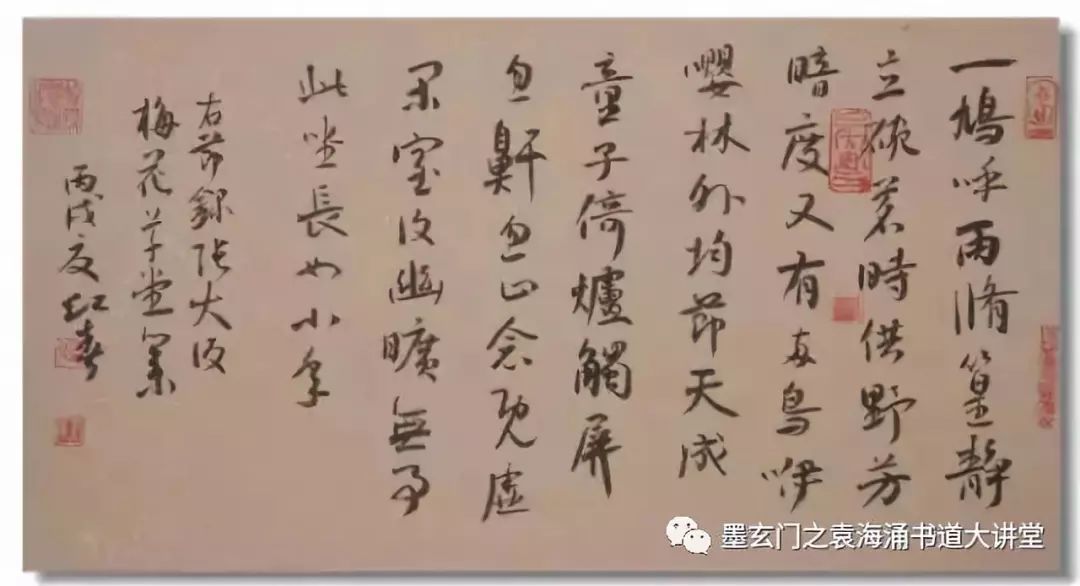 一鳩呼雨脩篁靜
立碗茗時供野芳
暗度又有兩鳥咿
嚶林外均節天成
童子倚爐觸屏
忽鼾忽止念既虛
閑室復幽曠無事
此坐長如小年
右節錄張大復
梅花草堂集
丙戌夏
墨玄门之袁海涌书道大讲堂